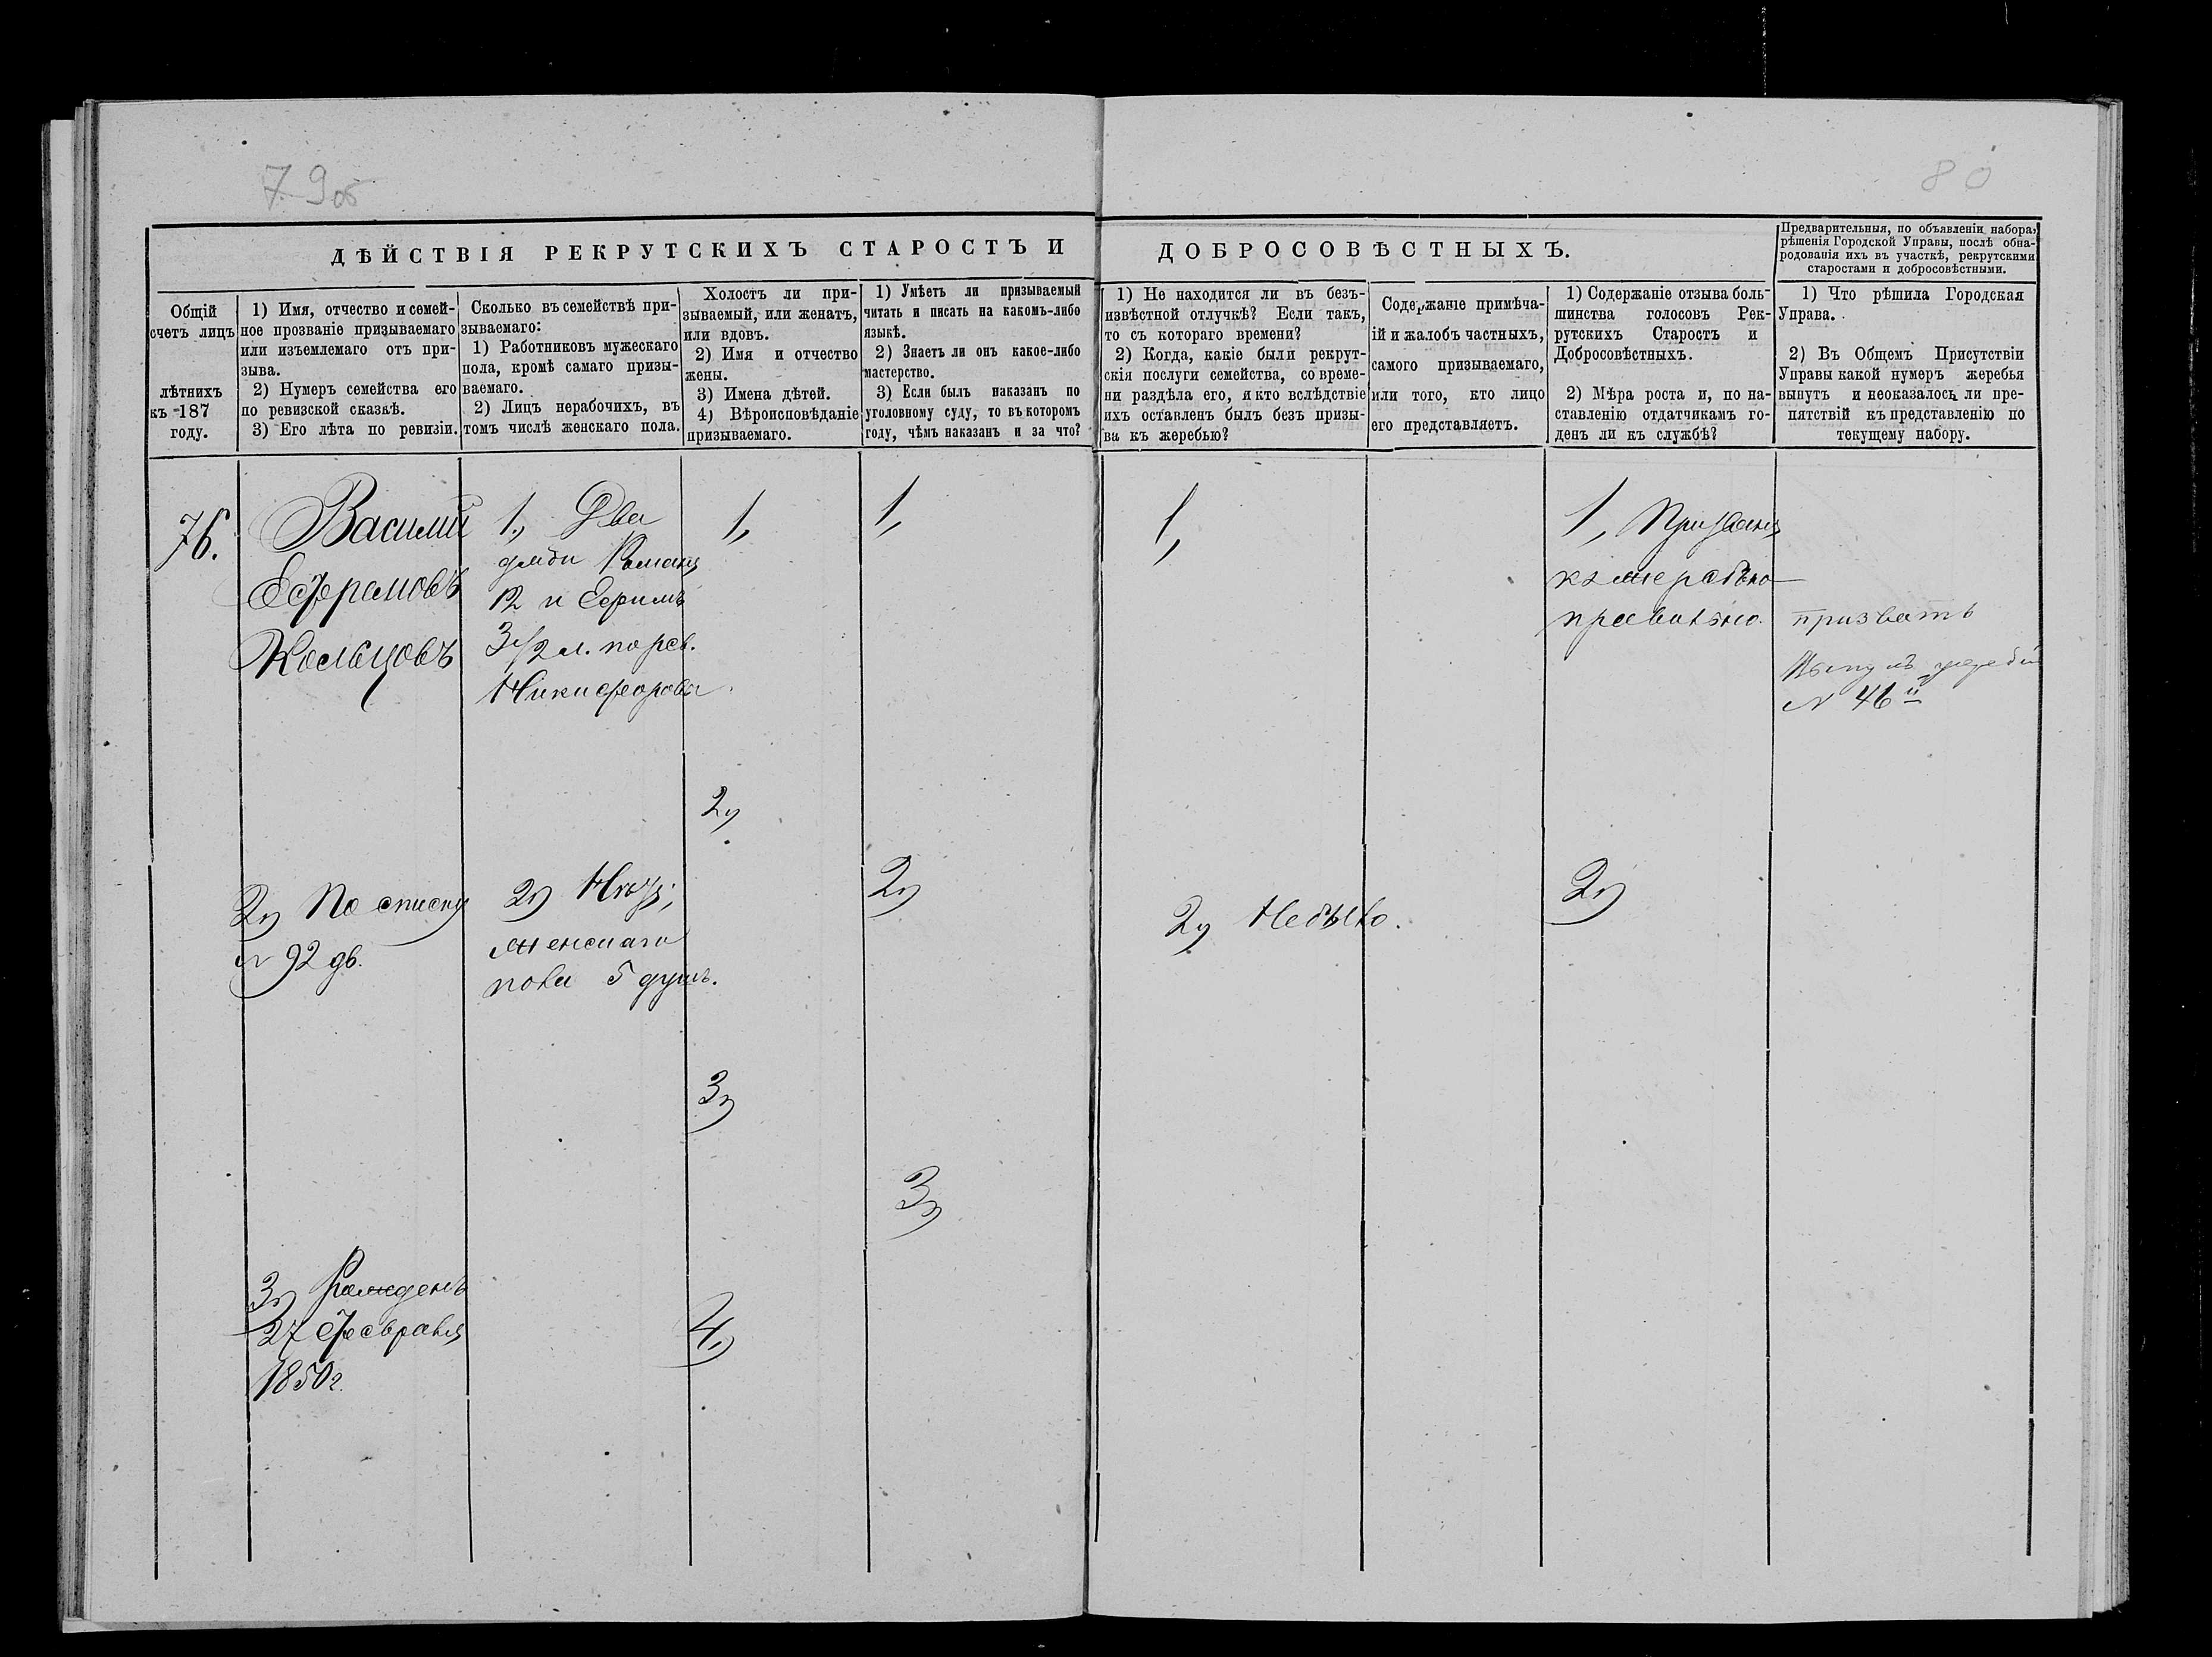 79об
80
ДѢЙСТВІЯ РЕКРУТСКИХЪ СТАРОСТЪ И ДОБРОСОВѢСТНЫХЪ.
Предварительныя, по объявленіи набора,
рѣшенія Городской Управы, послѣ обна-
родованія ихъ въ участкѣ, рекрутскими
старостами и добросовѣстными.
Общій
счетъ лицъ
лѣтнихъ
къ 187
году.
1) Имя, отчество и семей-
ное прозваніе призываемаго
или изъемлемаго отъ при-
зыва.
2) Нумеръ семейства его
по ревизской сказкѣ.
3) Его лѣта по ревизіи.
Сколько въ семействѣ при-
зываемаго:
1) Работниковъ мужескаго
пола, кромѣ самаго призы-
ваемаго.
2) Лицъ нерабочихъ, въ
томъ числѣ женскаго пола.
Холостъ ли при-
зываемый, или женатъ,
или вдовъ.
2) Имя и отчество
жены.
3) Имена дѣтей.
4) Вѣроисповѣданіе
призываемаго.
1) Умѣетъ ли призываемый
читать и писать на какомъ-либо
языкѣ.
2) Знаетъ ли онъ какое-либо
мастерство.
3) Если былъ наказанъ по
уголовному суду, то въ которомъ
году, чѣмъ наказанъ и за что?
1) Не находится ли въ безъ-
извѣстной отлучкѣ? Если такъ,
то съ котораго времени?
2) Когда, какіе были рекрут-
скія послуги семейства, со време-
ни раздѣла его, и кто вслѣдствіе
ихъ оставленъ былъ безъ призы-
ва къ жеребью?
Содержаніе примѣча-
ій и жалобъ частныхъ,
самого призываемаго,
или того, кто лицо
его представляетъ.
1) Содержаніе отзыва боль-
шинства голосовъ Рек-
рутскихъ Старостъ и
Добросовѣстныхъ.
2) Мѣра роста и, по на-
ставленію отдатчикамъ го-
денъ ли къ службѣ?
1) Что рѣшила Городская
Управа.
2) Въ Общемъ Присутствіи
Управы какой нумеръ жеребья
вынутъ и неоказалось ли пре-
пятствій къ представленію по
текущему набору.
76.
Василій
Ефремовъ
Кольцовъ
2) По списку
№ 92 дв.
3) Рожденъ
27 Февраля
1850 г.
1, Два
дяди Романъ
12 и Ефимъ
3 1/2 л. по рев.
Никифоровы.
2) Нѣтъ;
женскаго
пола 5 душъ.
1,
2)
3)
4)
1,
2)
3)
1,
2) Небыло.
1, Призванъ
къ жеребью
правильно.
2)
призвать
Вынулъ жеребій
№ 46й